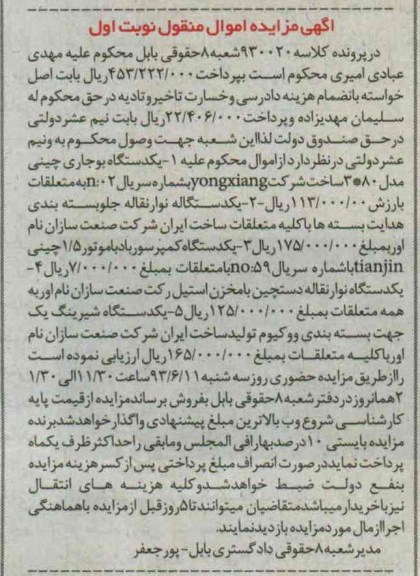 آگهی مزایده اموال منقول نوبت اول
در پرونده کلاسه ۹۳۰۰۲۰ شعبه ۸ حقوقی بابل محکوم علیه مهدی
عبادی امیری محکوم است بپرداخت ۴۵۳/۲۲۲/۰۰۰ ریال بابت اصل
خواسته بانضمام هزینه دادرسی و خسارت تاخیر و تادیه در حق محکوم له
سلیمان مهدیزاده و پرداخت ۲۲/۴۰۶/۰۰۰ ریال بابت نیم عشر دولتی
در حق صندوق دولت لذا این شعبه جهت وصول محکوم به و نیم
عشر دولتی در نظر دارد از اموال محکوم علیه ۱-یکدستگاه بوجاری چینی
مدل ۸۰*۳ ساخت شرکت yongxiang بشماره سریال n:۰۲ به متعلقات
بارزش ۱۱۳/۰۰۰/۰۰۰ ریال-۲-یکدستگاله نوار نقاله جلو بسته بندی
هدایت بسته ها با کلیه متعلقات ساخت ایران شرکت صنعت سازان نام
اور بمبلغ ۱۷۵/۰۰۰/۰۰۰ ریال ۳-یکدستگاه کمپرسور باد با موتور ۱/۵ چینی
tianjin باشماره سریال no:۵۹ بامتعلقات بمبلغ ۷/۰۰۰/۰۰۰ ریال ۴-
یکدستگاه نوار نقاله دستچین بامخزن استیل رکت صنعت سازان نام اور به
همه متعلقات بمبلغ ۱۲۵/۰۰۰/۰۰۰ ریال ۵-یکدستگاه شیرینگ پک
جهت بسته بندی و وکیوم تولید ساخت ایران شرکت صنعت سازان نام
اور باکلیه متعلقات بمبلغ ۱۶۵/۰۰۰/۰۰۰ ریال ارزیابی نموده است
را از طریق مزایده حضوری روز سه شنبه ۹۳/۶/۱۱ ساعت ۱۱/۳۰ الی ۱/۳۰
۲ همانروز در دفتر شعبه ۸ حقوقی بابل بفروش برساند مزایده از قیمت پایه
کارشناسی شروع وب بالاترین مبلغ پیشنهادی واگذار خواهد شد برنده
مزایده بایستی ۱۰ درصد بها را فی المجلس و مابقی را حداکثر ظرف یکماه
پرداخت نماید در صورت انصراف مبلغ پرداختی پس از کسر هزینه مزایده
بنفع دولت ضبط خواهد شد و کلیه هزینه های انتقال
نیز باخریدار میباشد متقاضیان میتوانند تا ۵ روز قبل از مزایده باهماهنگی
اجرا از مال مورد مزایده بازدید نمایند.
مدیر شعبه ۸ حقوقی دادگستری بابل - پور جعفر